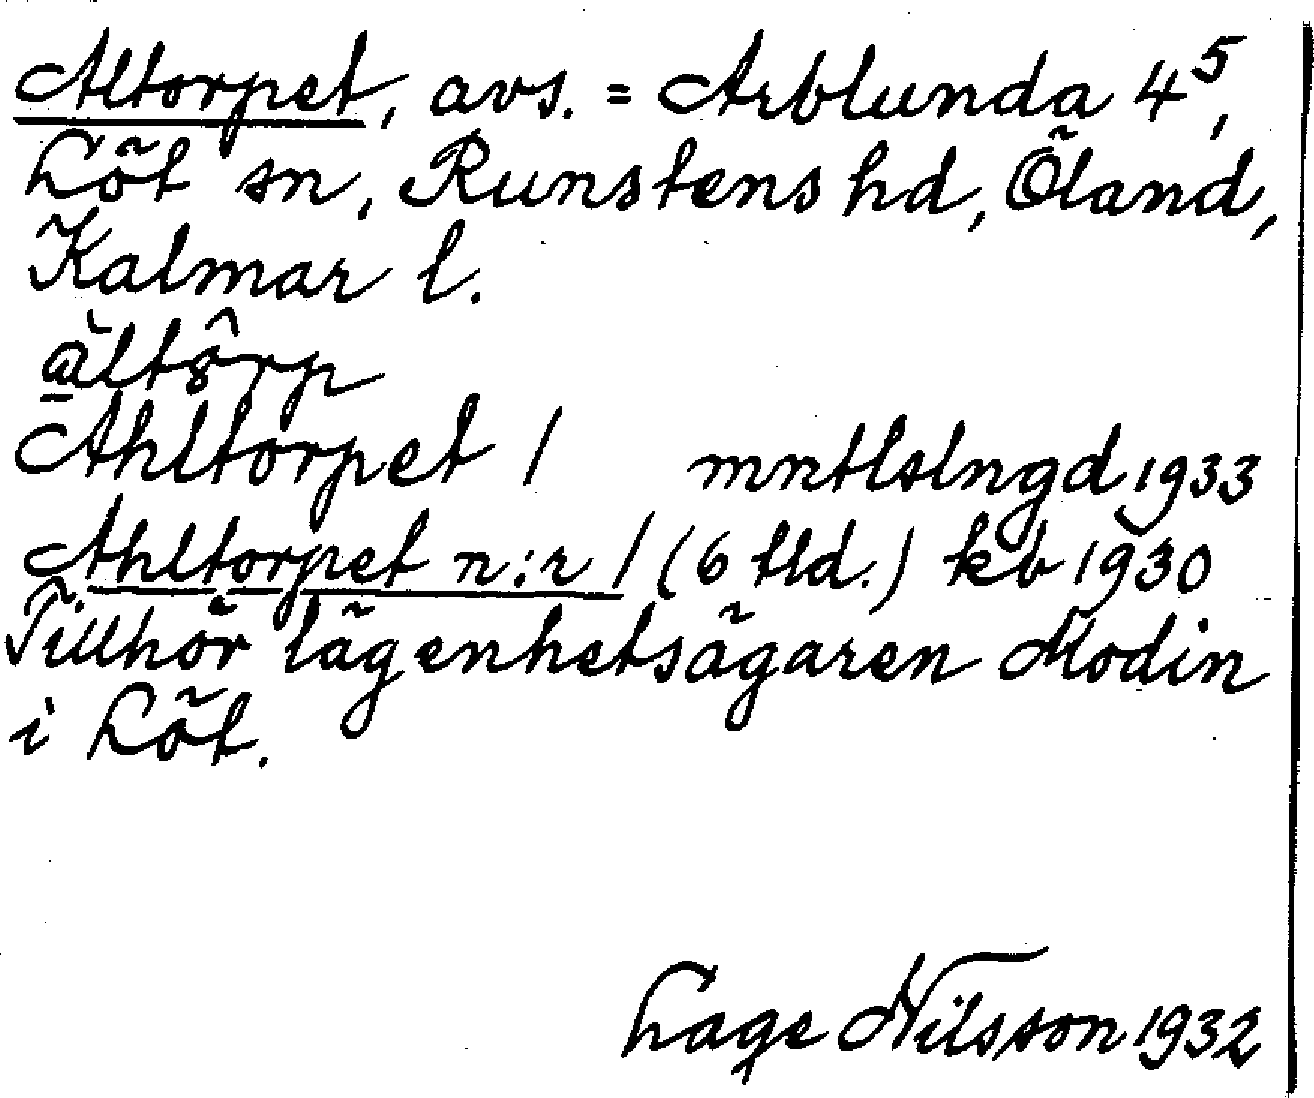 Altorpet, avs. = Arblunda 4⁵,
Löt sn, Runstens hd, Öland,
Kalmar l.
Ahltorpet 1 mntlslngd 1933
Ahltorpet n:r 1 (6 tld.) kb 1930
Tillhör lägenhetsägaren Modin
i Löt.
Lage Nilsson 1932